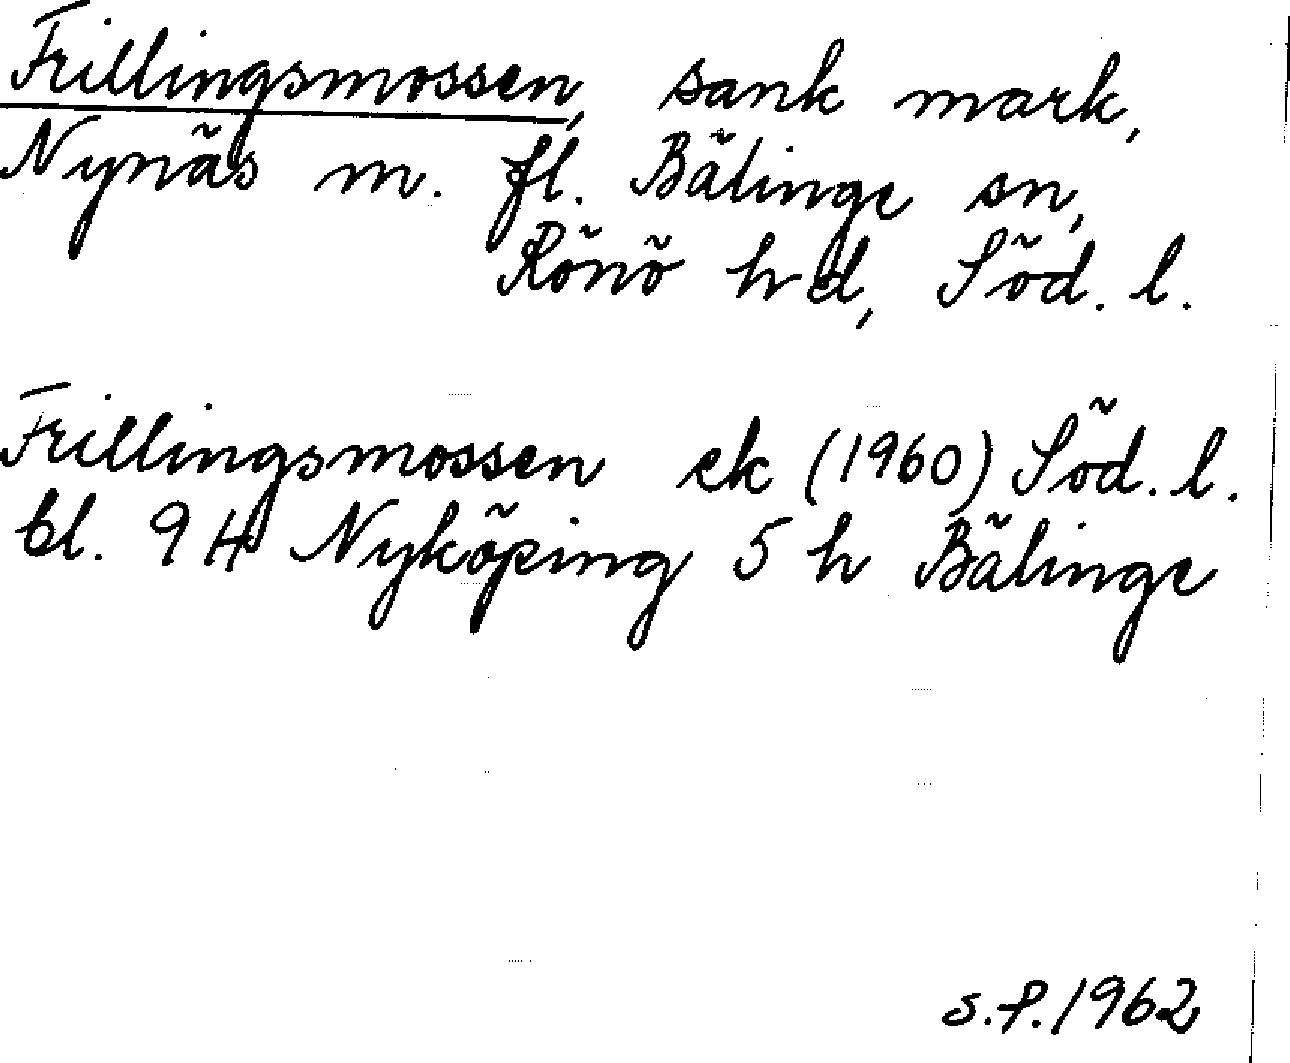 Frillingsmossen, sank mark,
Nynäs m. fl. Bälinge sn,
Rönö hd, Söd. l.
Frillingsmossen ek (1960) Söd. l.
bl. 9 H Nyköping 5 h Bälinge
s.f. 1962